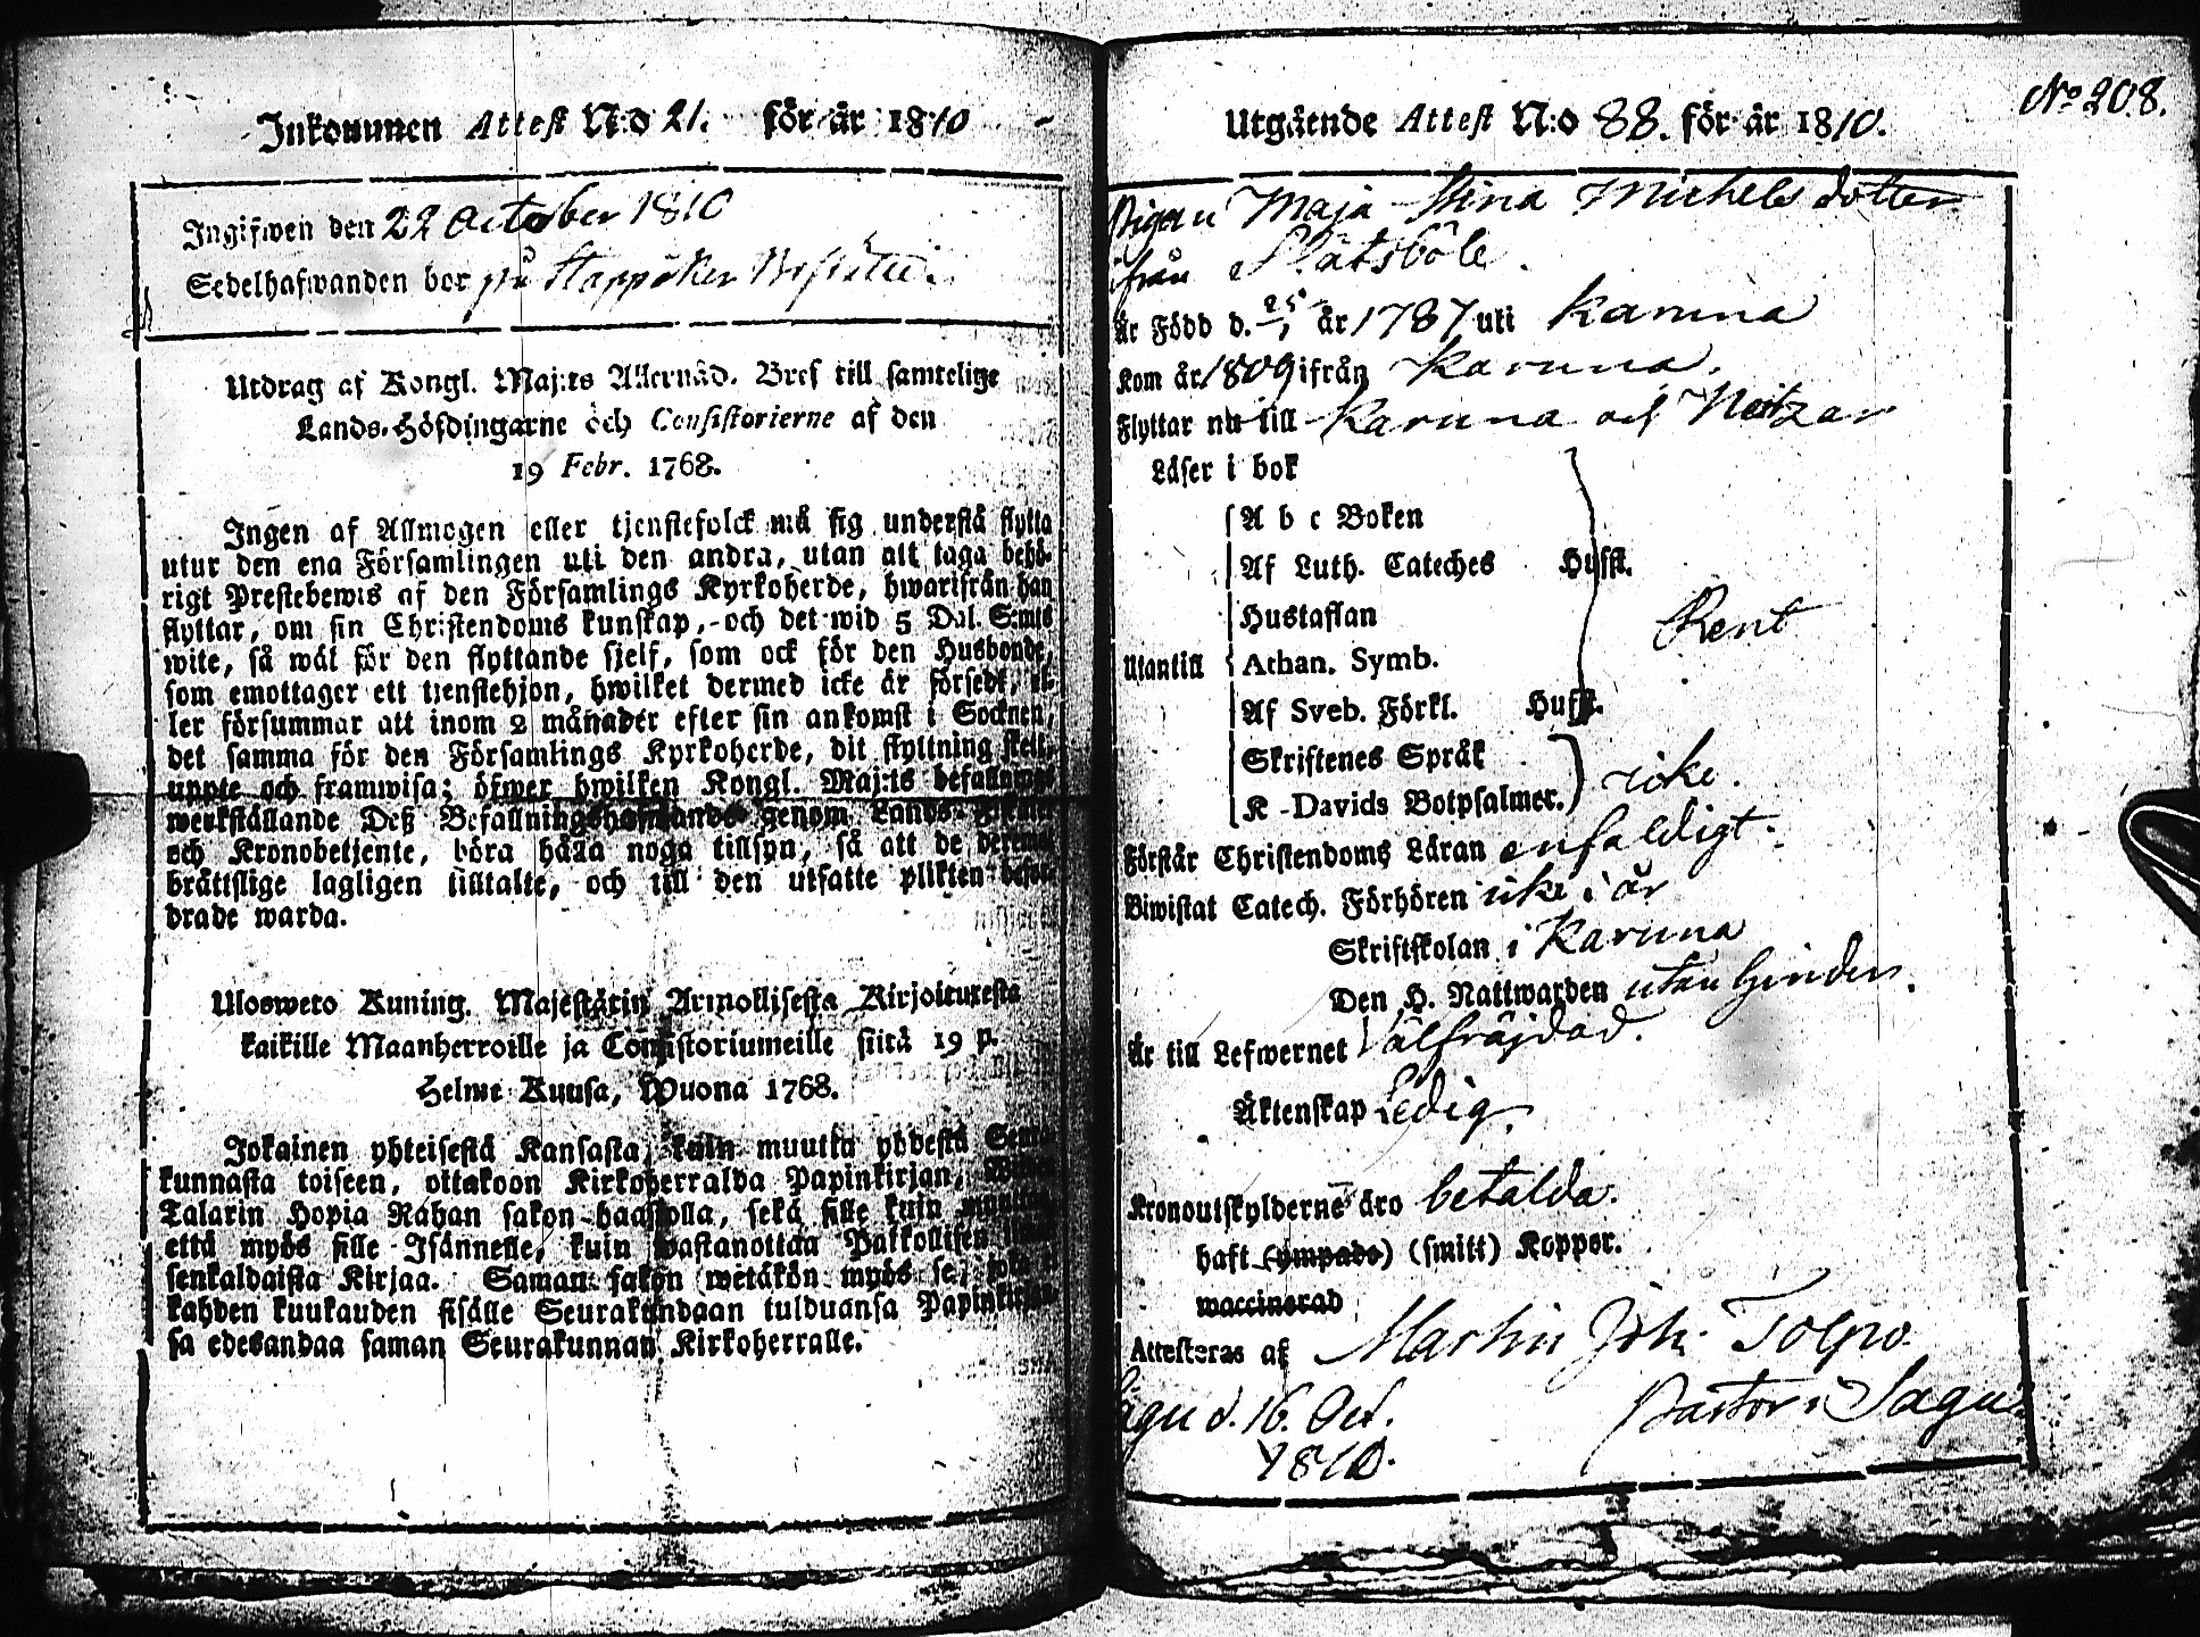 Inkommen Attest N:o 21. för år 1810
Ingifwen den 22 October 1810
Sedelhafwanden bor på
Utdrag af Kongl. Maj:ts Allernåd. Bref till samtelige
Lands-Höfdingarne och Consistorierne af den
19 Febr. 1768.
Ingen af Allmogen eller tjenstefolck må sig understå flytta
utur den ena Församlingen uti den andra, utan att taga behö-
rigt Prestebewis af den Församlings Kyrkoherde, hwarifrån han
flyttar, om sin Christendoms kunskap, och det wid 5 Dal. S:mts
wite, så wäl för den flyttande sjelf, som ock för den Husbonde,
som emottager ett tjenstehjon, hwilket dermed icke är försedt, el-
ler försummar att inom 2 månader efter sin ankomst i Socknen,
det samma för den Församlings Kyrkoherde, dit flyttning skett,
uppte och framwisa; öfwer hwilken Kongl. Maj:ts befallnings
werkställande Deß Befallningshafwande genom Lands-
och Kronobetjente, böra hålla noga tillsyn, så att de deremot
bråttslige lagligen tilltalte, och till den utsatte plikten befor-
drade warda.
Ulosweto Kuning. Majestätin Armollisesta Kirjoituxesta
kaikille Maanherroille ja Consistoriumeille siitä 19 p.
Helme Kuusa, Wuona 1768.
Jokainen yhteisestä Kansasta, kuin muutta yhdestä Seura-
kunnasta toiseen, ottakoon Kirkoherralda Papinkirjan,
Talarin Hopia Rahan sakon haastolla, sekä sille kuin muuttaa
että myös sille Isännelle, kuin wastanottaa Palkollisen
senkaldaista Kirjaa. Saman sakon wetäkön myös se, joka ei
kahden kuukauden sisälle Seurakundaan tulduansa Papinkirjan-
sa edesandaa saman Seurakunnan Kirkoherralle.
No 208.
Utgående Attest N:o 88. för år 1810.
Pigan Maja Stina Michels dotter
ifrån Slätsböle.
Är Född d. 25/1 år 1787 uti Karuna
Kom år 1809 ifrån Karuna.
Flyttar nu till Karuna och
Läser i bok
A b c Boken
Af Luth. Cateches Hufst.
Hustaflan
Rent
Utantill Athan. Symb.
Af Sveb. Förkl. Hufst.
Skriftenes Språk
icke.
K-Davids Botpsalmer.
Förstår Christendoms Läran enfaldigt.
Biwistat Catech. Förhören icke i år
Skriftskolan i Karuna
Den H. Nattwarden utan hinder.
Är till Lefwernet Välfräjdad.
Äktenskap Ledig.
Kronoutskylderne äro betalda.
haft (ympade) (smitt) Koppor.
waccinerad
Attesteras af Martin Joh. Tolpo.
Pastor i Sagu.
Sagu d. 16. Oct.
1810.